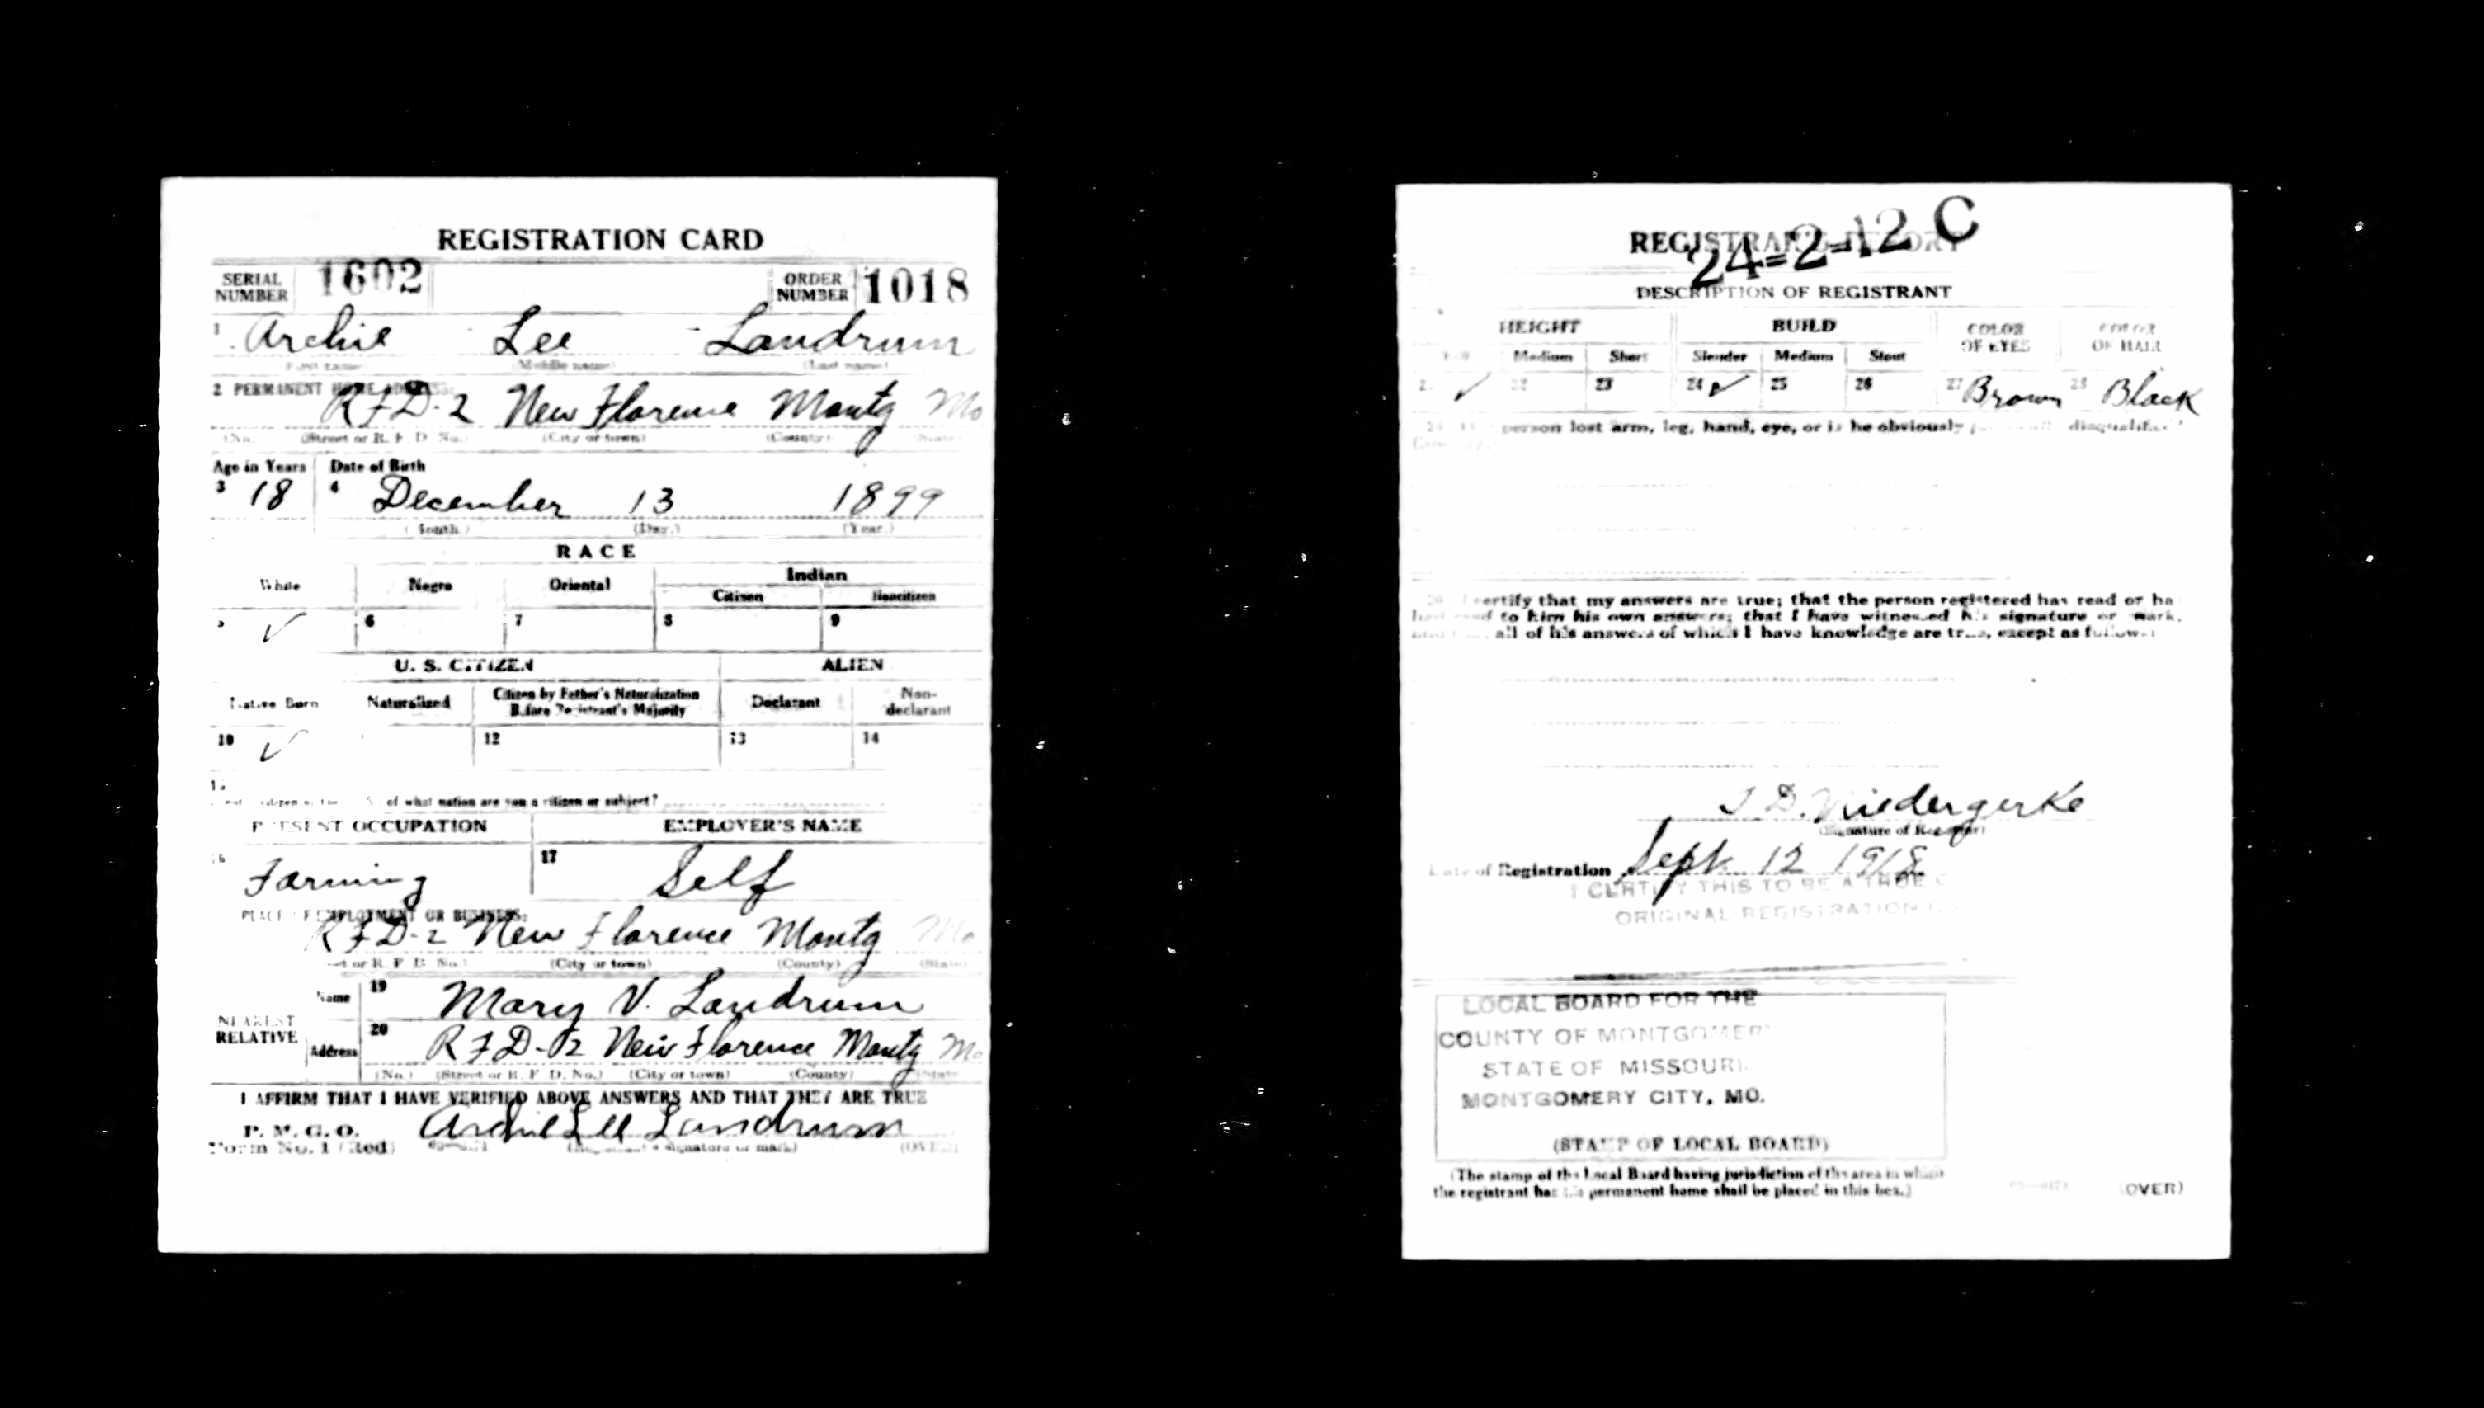 REGISTRATION CARD
SERIAL NUMBER 1602 ORDER NUMBER 1018
1 Archie Lee Landrum
(Middle name) (Last name)
2 PERMANENT HOME ADDRESS:
RFD-2 New Florence Montg Mo
(No.) (Street or R. F. D. No.) (City or town) (County) (State)
Age in Years Date of Birth
3 18 4 December 13 1899
(Month.) (Day.) (Year.)
RACE
White Negro Oriental Indian
Citizen Noncitizen
5 ✓ 6 7 8 9
U. S. CITIZEN ALIEN
Native Born Naturalized Citizen by Father's Naturalization Before Registrant's Majority Declarant Non-declarant
10 ✓ 12 13 14
15
of what nation are you a citizen or subject?
PRESENT OCCUPATION EMPLOYER'S NAME
16 Farming 17 Self
PLACE OF EMPLOYMENT OR BUSINESS:
RFD-2 New Florence Montg Mo
(City or town) (County) (State)
NEAREST RELATIVE
Name 19 Mary V. Landrum
Address 20 RFD-2 New Florence Montg Mo
(No.) (Street or R. F. D. No.) (City or town) (County) (State)
I AFFIRM THAT I HAVE VERIFIED ABOVE ANSWERS AND THAT THEY ARE TRUE
P. M. G. O.
Form No. 1 (Red) Archie Lee Landrum
(Registrant's signature or mark) (OVER)
REGISTRAR'S REPORT
24-2-12 C
DESCRIPTION OF REGISTRANT
HEIGHT BUILD COLOR OF EYES COLOR OF HAIR
Medium Short Slender Medium Stout
21 ✓ 22 23 24 ✓ 25 26 27 Brown 28 Black
person lost arm, leg, hand, eye, or is he obviously disqualified?
certify that my answers are true; that the person registered has read or ha
to him his own answers; that I have witnessed his signature or mark,
all of his answers of which I have knowledge are true, except as follows:
Niedergerke
(Signature of Registrar)
Date of Registration Sept. 12 1918
I CERTIFY THIS TO BE A TRUE
ORIGINAL REGISTRATION
LOCAL BOARD FOR THE
COUNTY OF MONTGOMERY
STATE OF MISSOURI.
MONTGOMERY CITY, MO.
(STAMP OF LOCAL BOARD)
(The stamp of the Local Board having jurisdiction of the area in which
the registrant has his permanent home shall be placed in this box.)
(OVER)